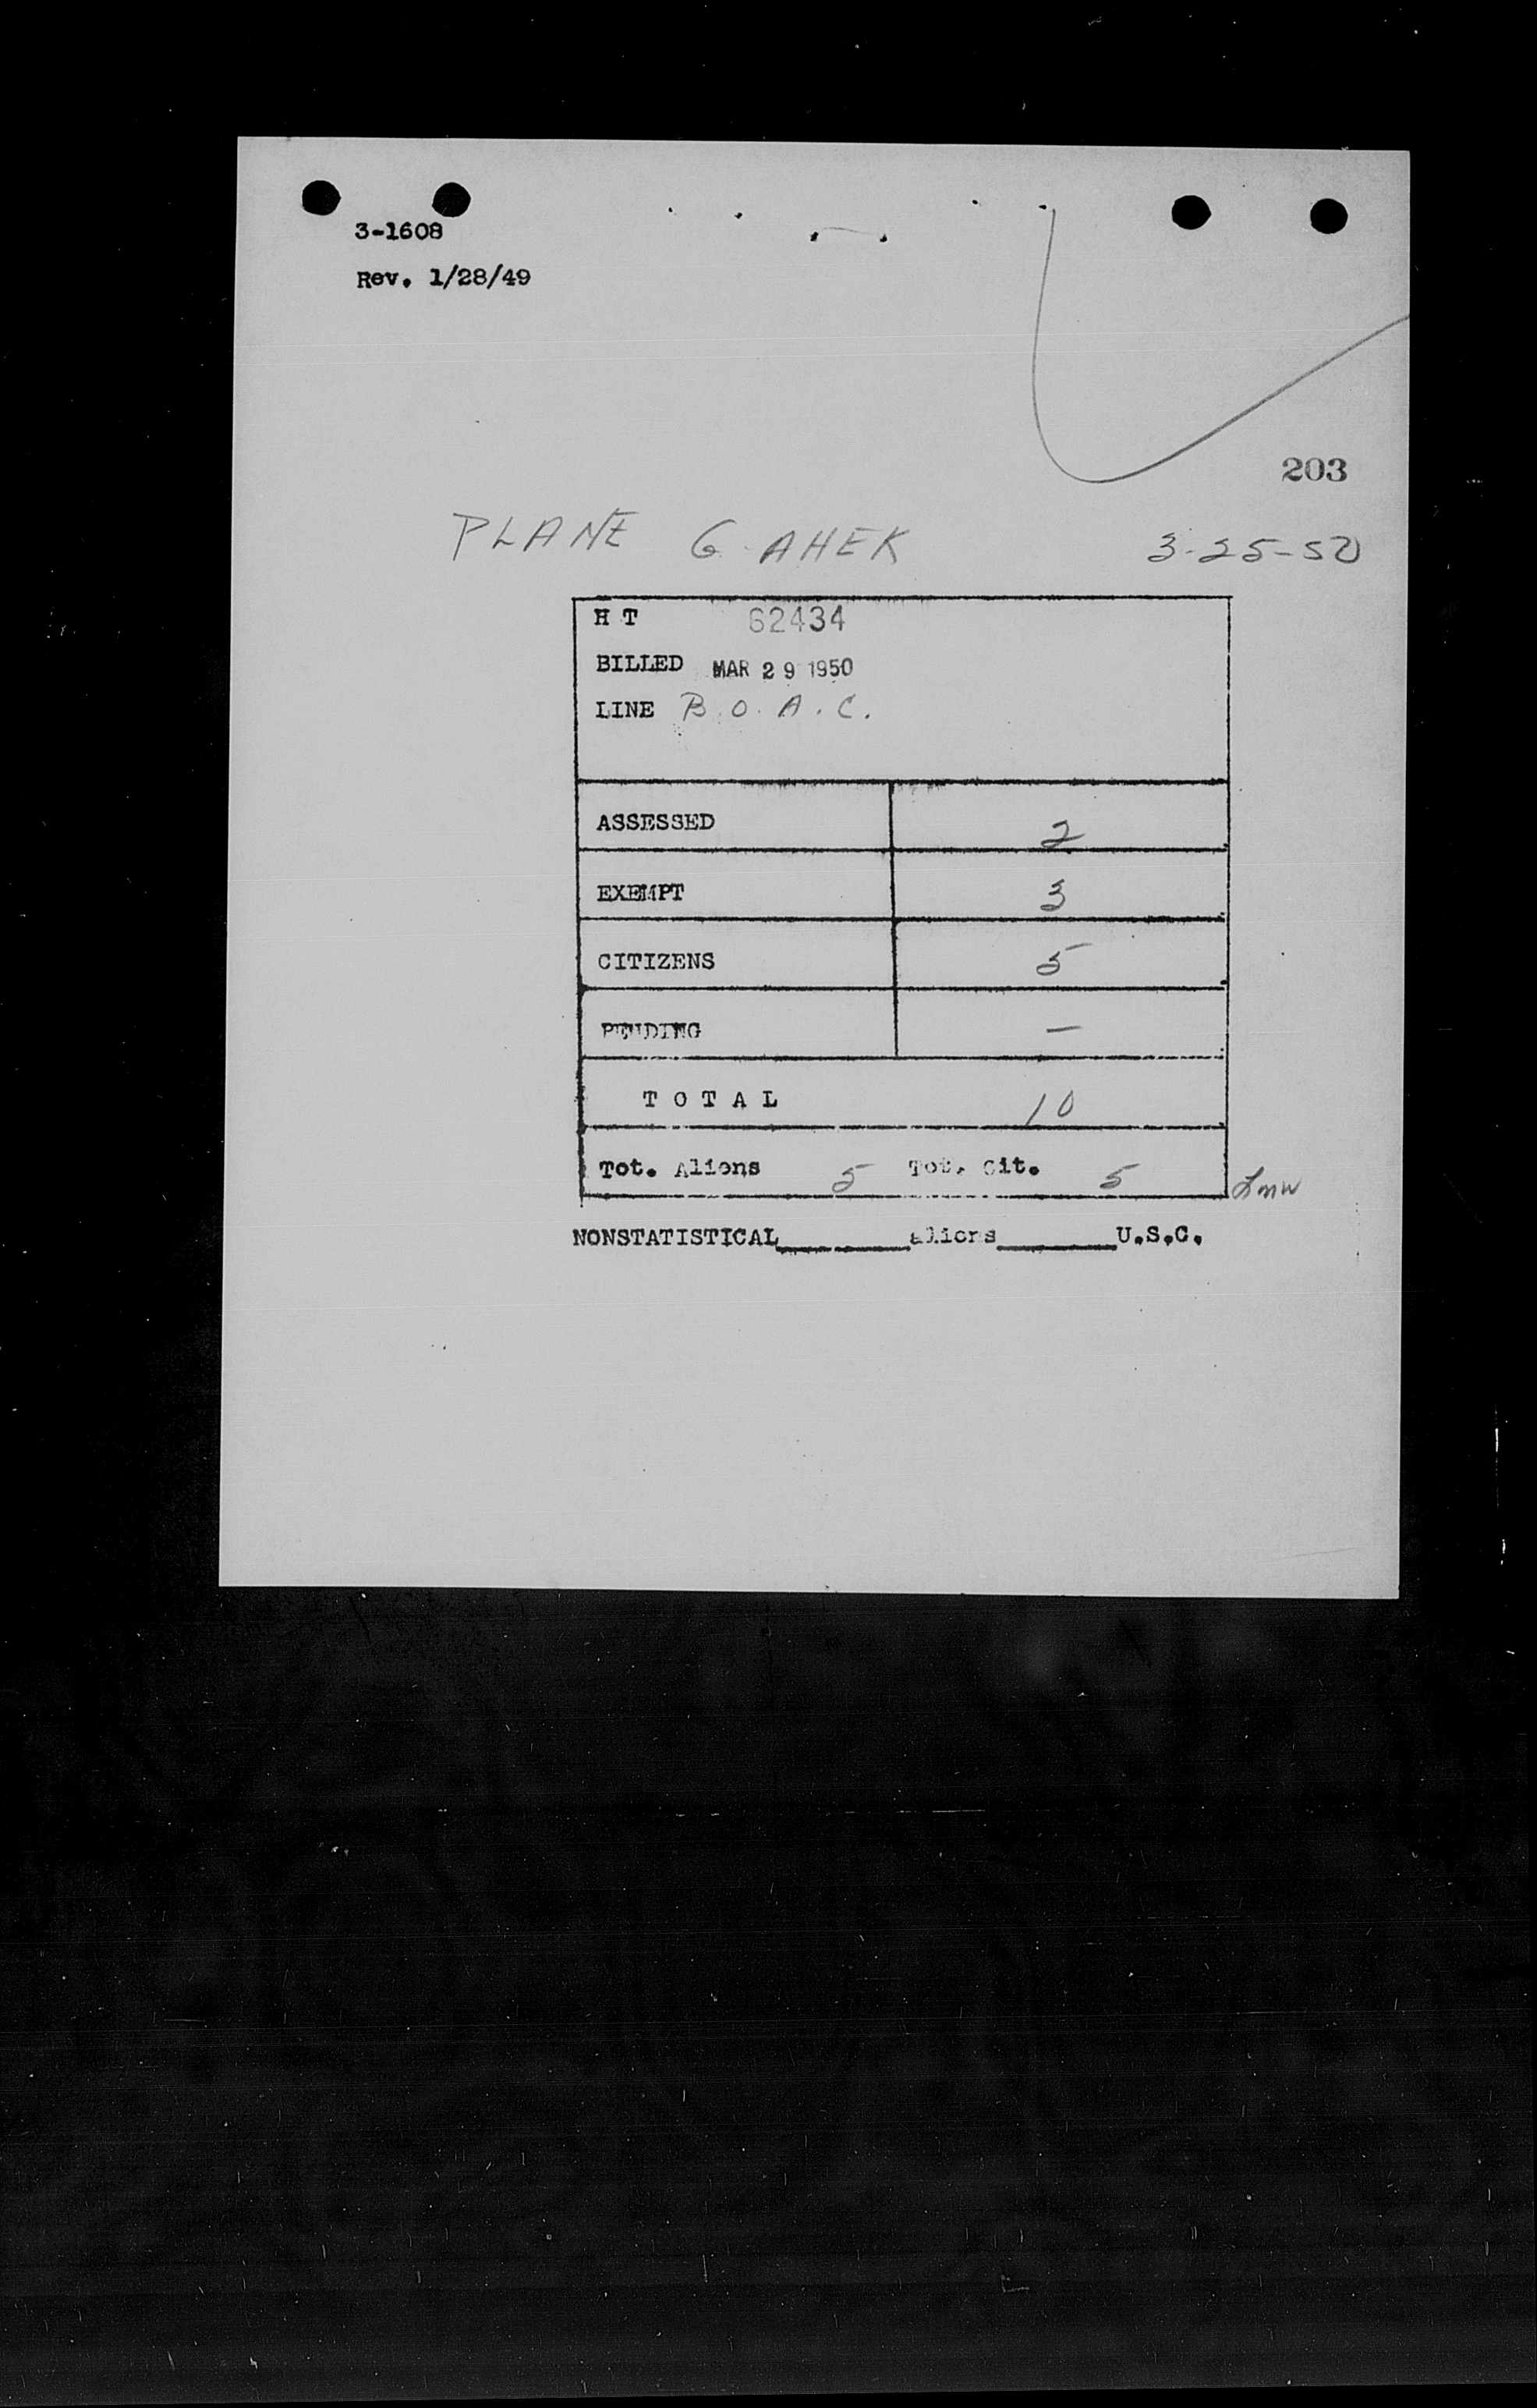 3-1608
Rev. 1/28/49
203
PLANE G-AHEK 3-25-50
H T 62434
BILLED MAR 29 1950
LINE B.O.A.C.
ASSESSED 2
EXEMPT 3
CITIZENS 5
PENDING —
T O T A L 10
Tot. Aliens 5 Tot. Cit. 5
NONSTATISTICAL________aliens_______U.S.C.